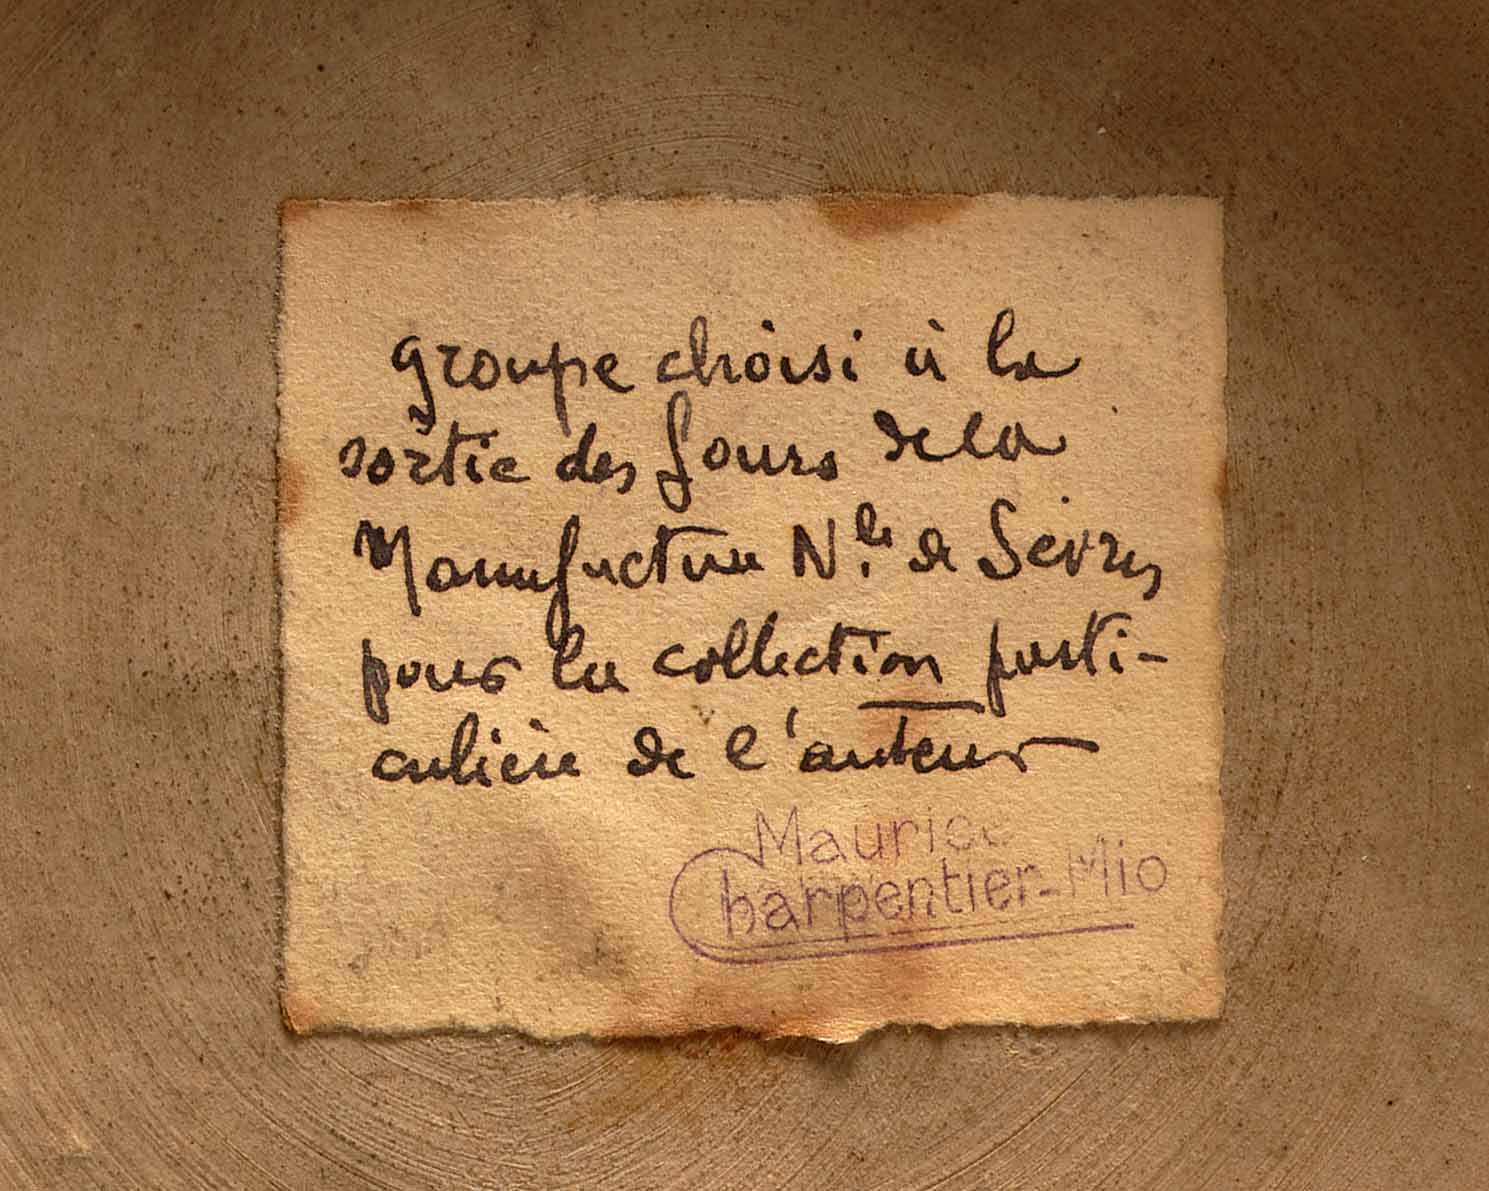 groupe choisi à la
sortie des fours de la
Manufacture N.le de Sèvres
pour la collection parti-
culière de l'auteur
Maurice
Charpentier-Mio